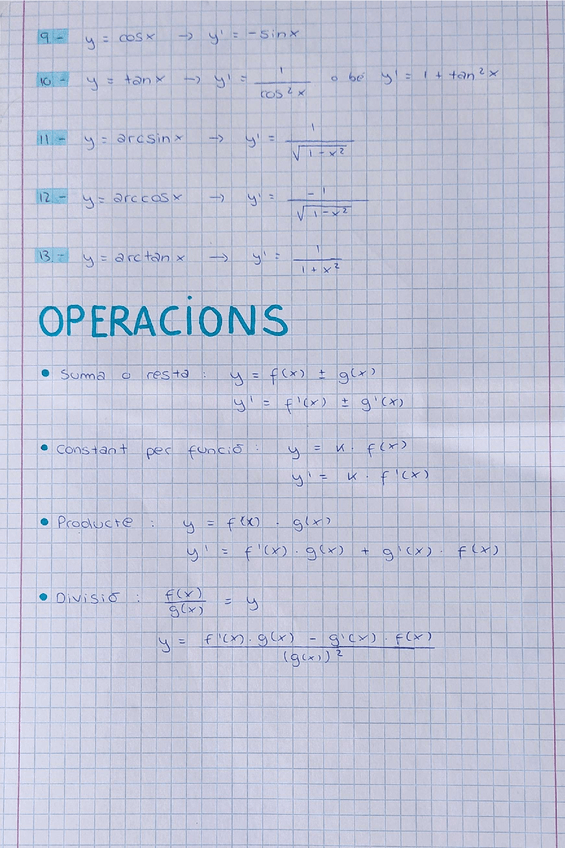 9- y = cosx → y' = -sinx
10- y = tanx → y' = 1/cos²x o bé y' = 1 + tan²x
11- y = arcsinx → y' = 1/√(1-x²)
12- y = arccosx → y' = -1/√(1-x²)
13- y = arctanx → y' = 1/(1+x²)
OPERACIONS
• Suma o resta : y = f(x) ± g(x)
y' = f'(x) ± g'(x)
• Constant per funció : y = K · f(x)
y' = K · f'(x)
• Producte : y = f(x) · g(x)
y' = f'(x) · g(x) + g'(x) · f(x)
• Divisió : f(x)/g(x) = y
y = (f'(x) · g(x) - g'(x) · f(x))/(g(x))²